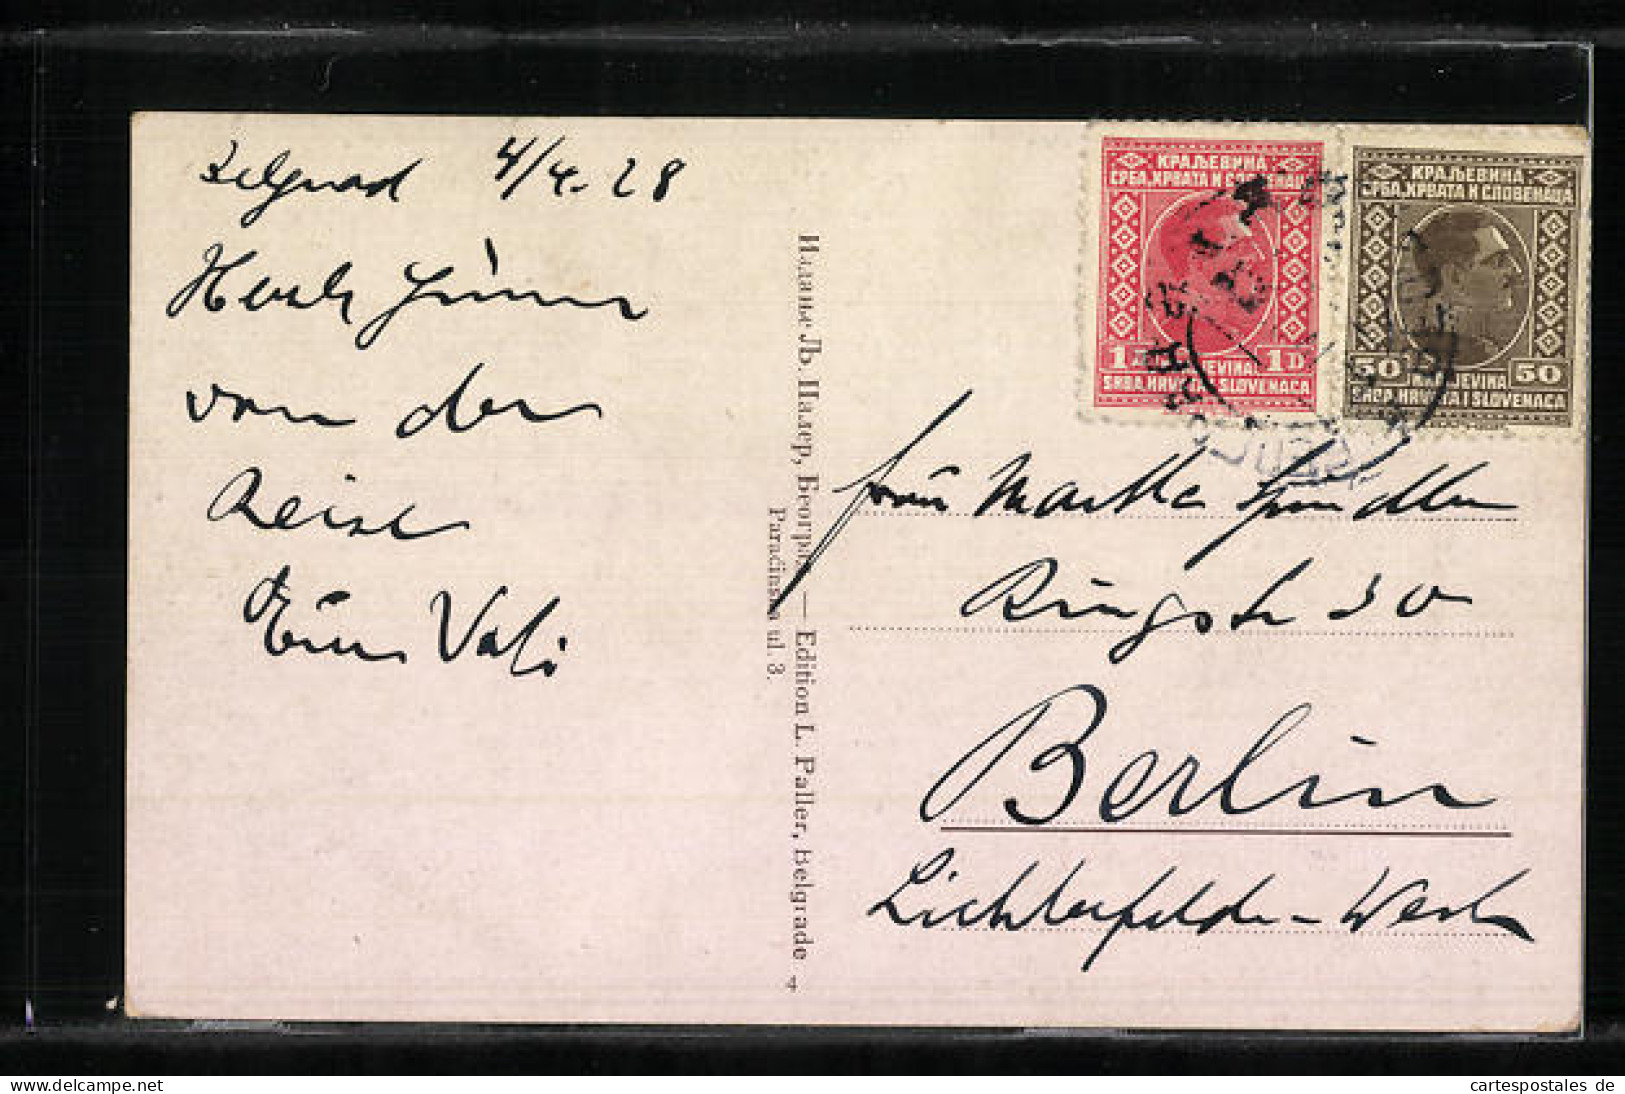 Belgrad 4/4. 28
Herzl. Grüsse
von der
Reise
Euer Vati
Издање Љ. Палер, Београд — Edition L. Paller, Belgrade
Paraćinska ul. 3.
4
КРАЉЕВИНА
СРБА, ХРВАТА И СЛОВЕНАЦА
1 1D
SRBA, HRVATA I SLOVENACA
КРАЉЕВИНА
СРБА, ХРВАТА И СЛОВЕНАЦА
50 50
KRALJEVINA
SRBA, HRVATA I SLOVENACA
Frau Martha
Ringstr 30
Berlin
Lichterfelde-West
cartespostales de